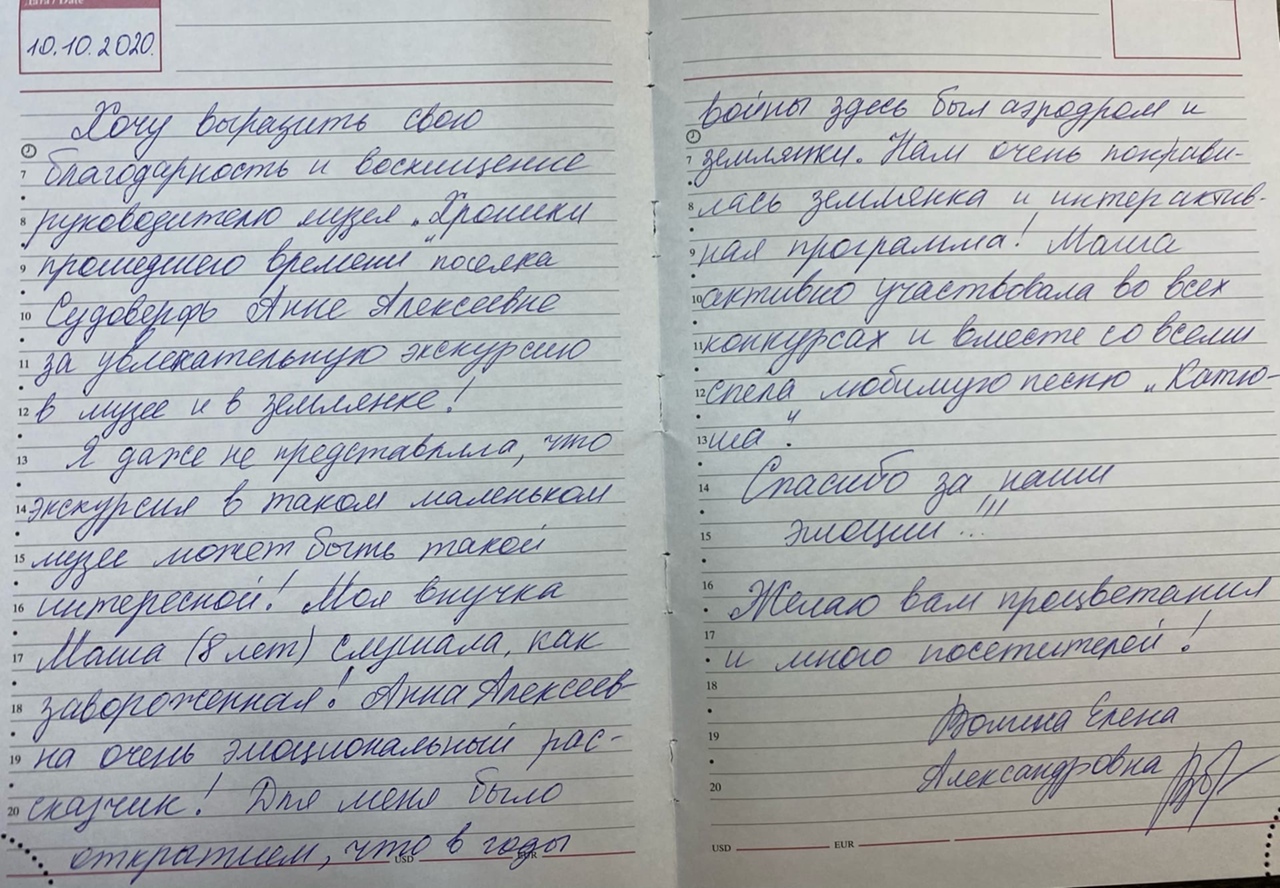 Дата / Date
10.10.2020.
Хочу выразить свою
благодарность и восхищение
руководителю музея „Хроники
прошедшего времени" поселка
Судоверфь Анне Алексеевне
за увлекательную экскурсию
в музее и в землянке!
Я даже не представляла, что
экскурсия в таком маленьком
музее может быть такой
интересной! Моя внучка
Маша (8 лет) слушала, как
завороженная! Анна Алексеев-
на очень эмоциональный рас-
сказчик! Для меня было
открытием, что в годы
USD EUR
7
8
9
10
11
12
13
14
15
16
17
18
19
20
войны здесь был аэродром и
землянки. Нам очень понрави-
лась землянка и интерактив-
ная программа! Маша
активно участвовала во всех
конкурсах и вместе со всеми
спела любимую песню „Катю-
ша".
Спасибо за наши
эмоции!!!
Желаю вам процветания
и много посетителей!
Елена
Александровна
USD EUR
7
8
9
10
11
12
13
14
15
16
17
18
19
20